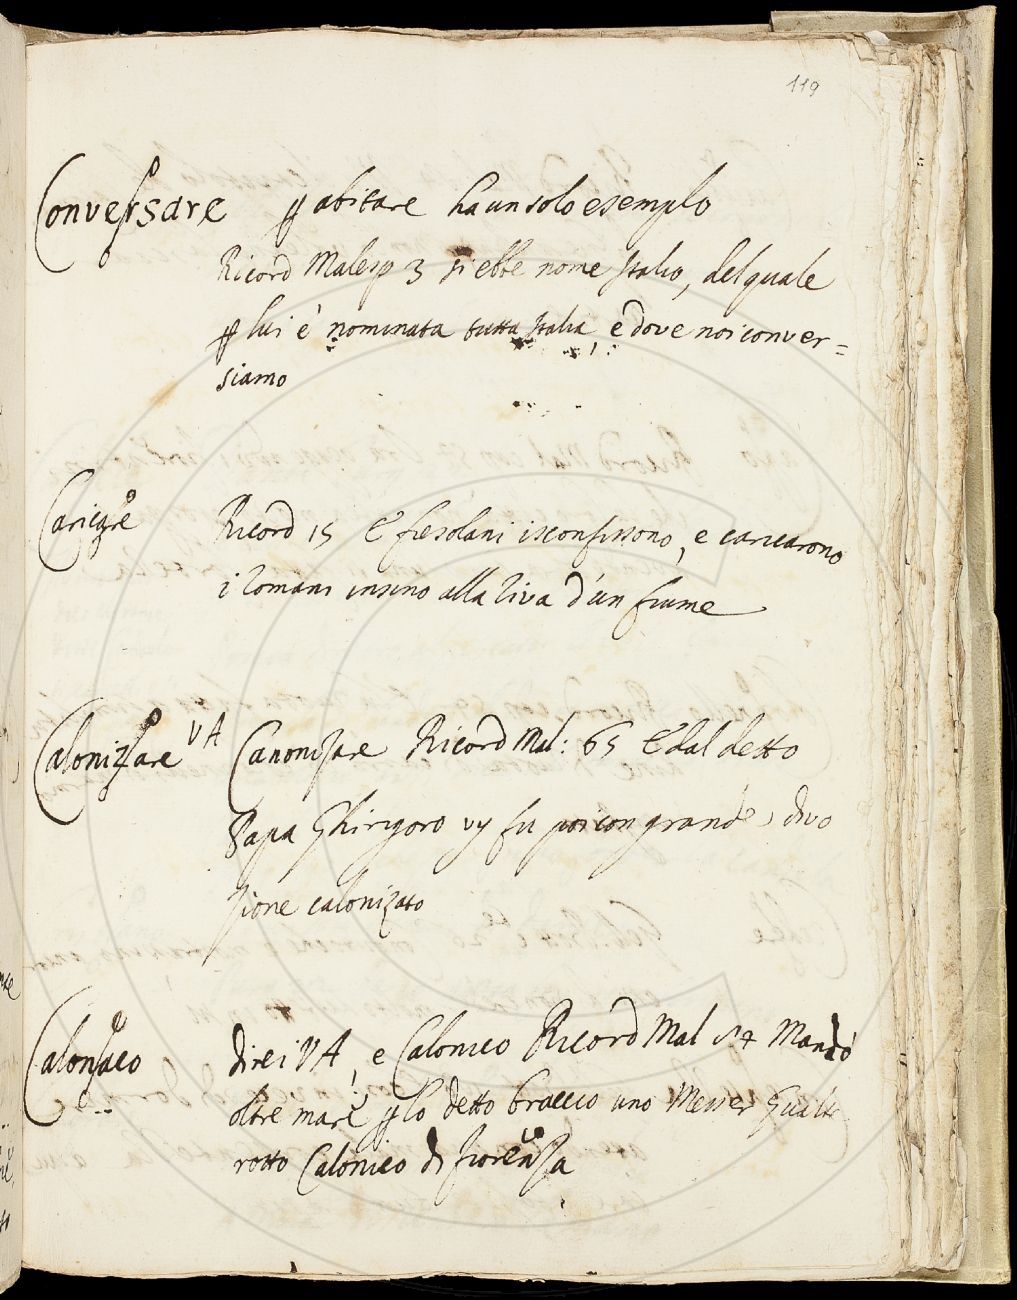 119
Conversare ꝑ abitare ha un solo esemplo
Ricord Malesp 3 si ebbe nome Italio, del quale
ꝑ lui è nominata tutta Italia, e dove noi conver=
siamo
Caricare Ricord 15 E' fiesolani isconfissono, e caricarono
i Romani insino alla riva d'un fiume
Calonizzare VA Canonizare Ricord Mal: 65 E dal detto
Papa Ghirigoro vij fu poi con grande divo
zione calonizato
Calonaco direi VA, e Calonico Ricord Mal 54 Mandò
oltre mare ꝑ lo detto braccio uno Messer Gualte
rotto Calonico di Fiorenza